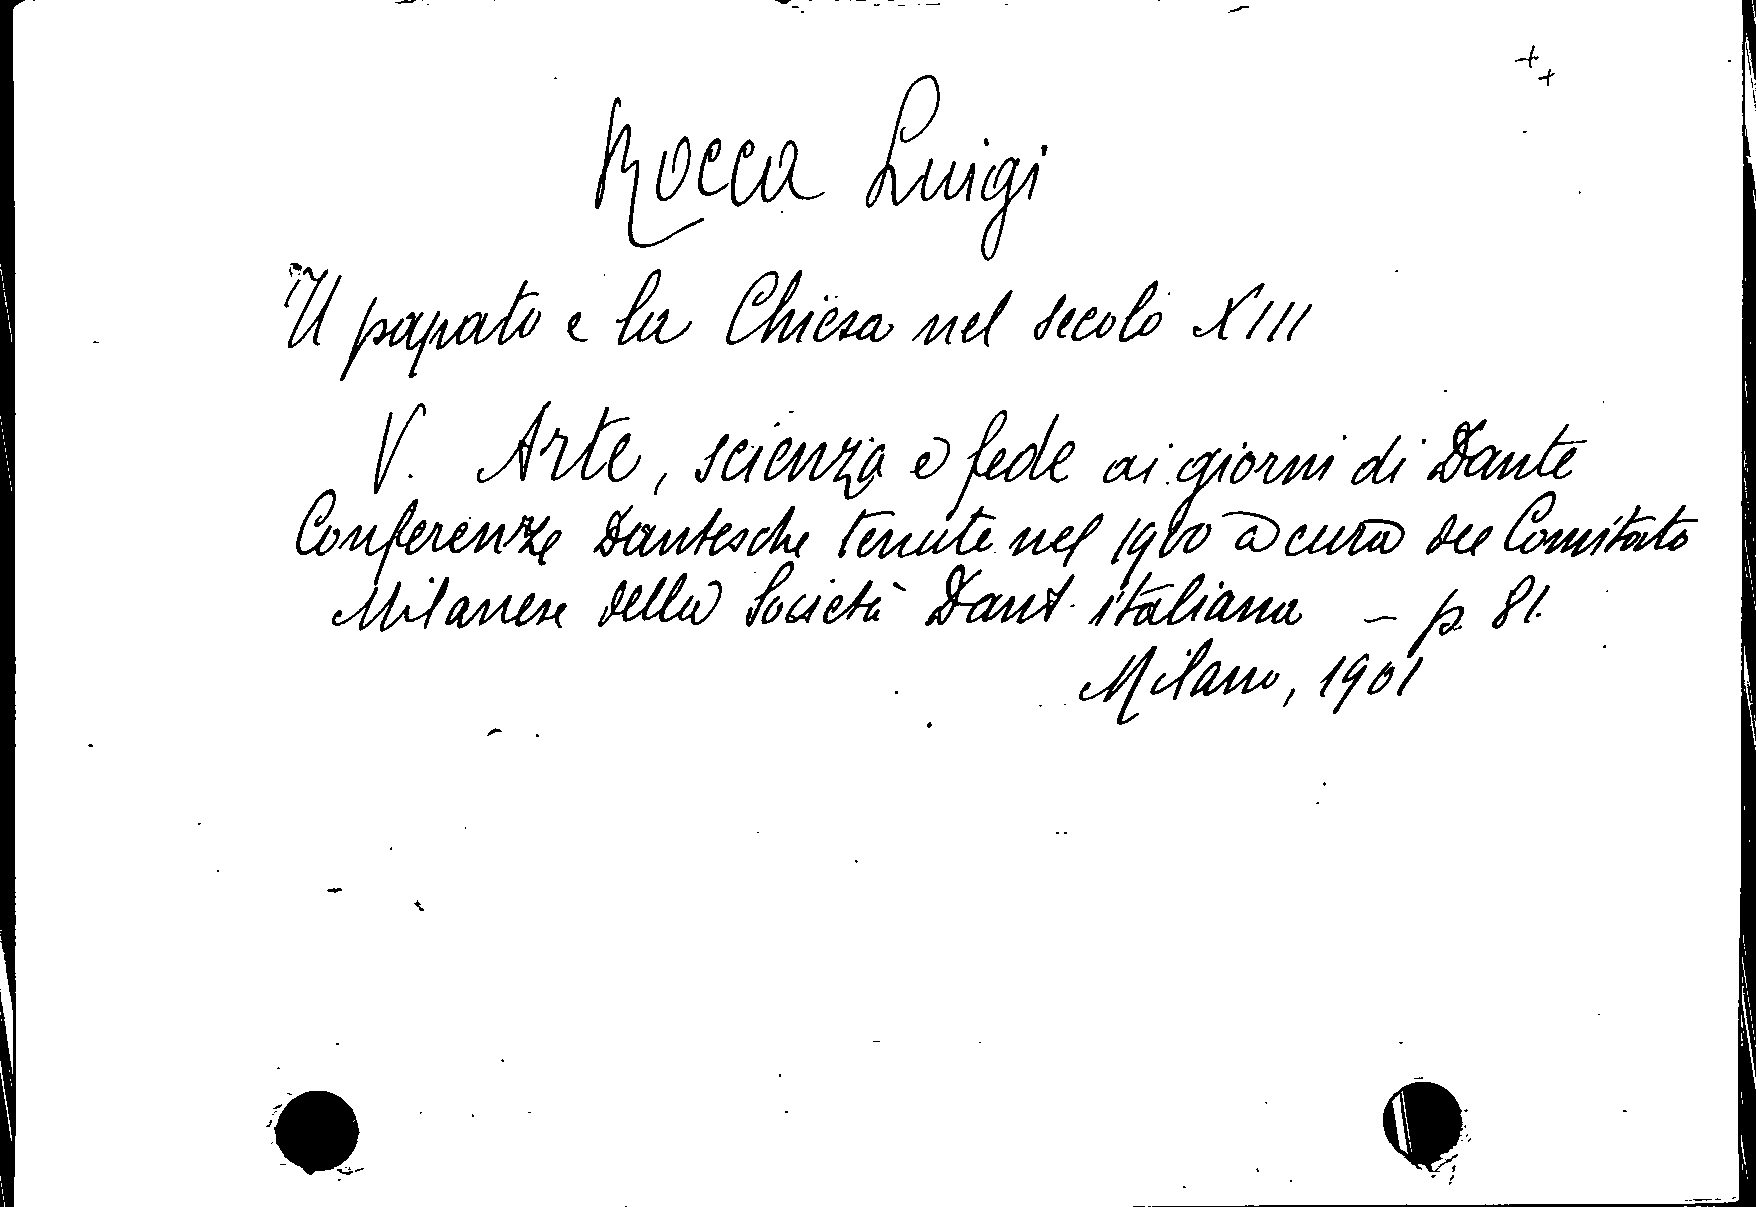 ++
Rocca Luigi
Il papato e la Chiesa nel secolo XIII
V. Arte, scienza e fede ai giorni di Dante
Conferenze Dantesche tenute nel 1900 a cura del Comitato
Milanese della Società Dant. italiana – p. 81.
Milano, 1901